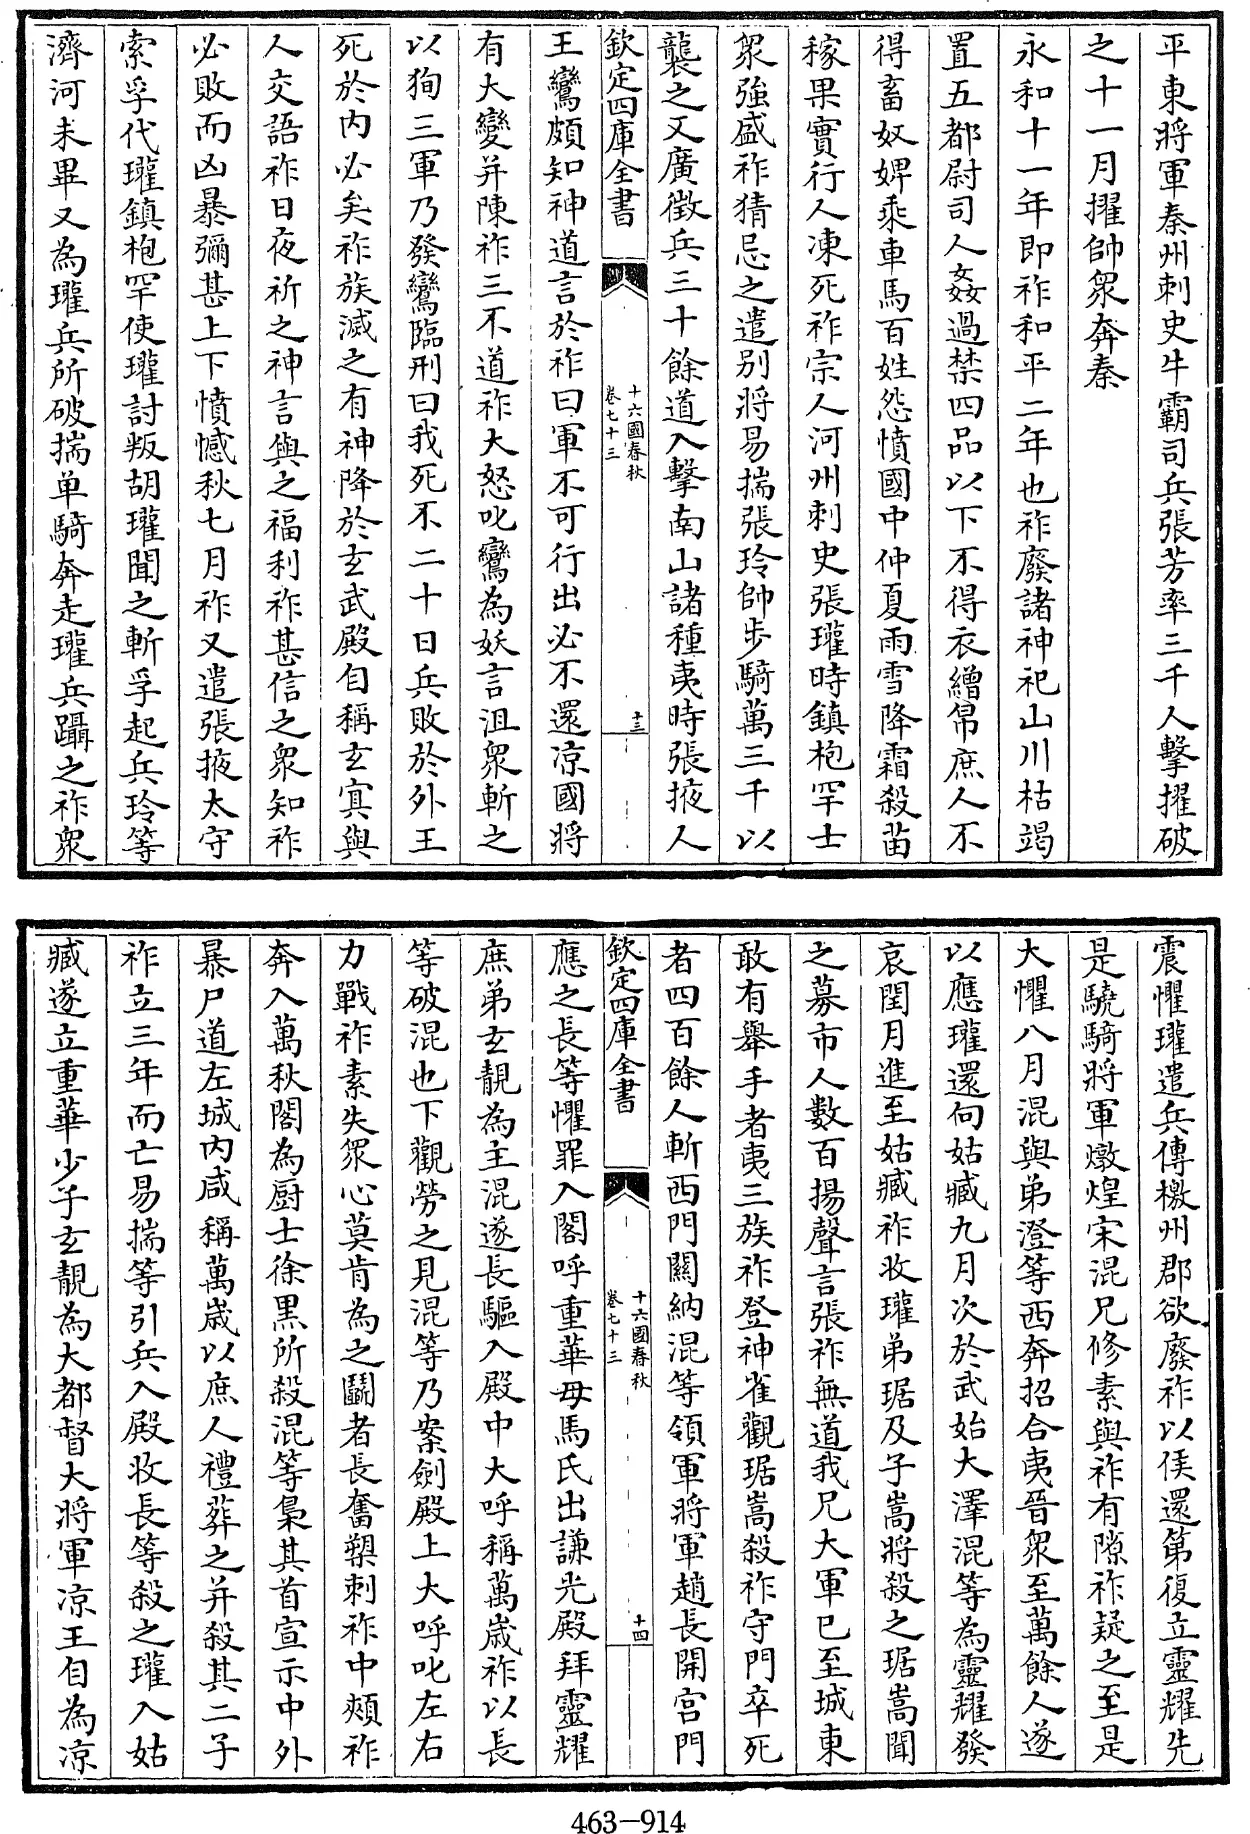 平東將軍秦州刺史牛霸司兵張芳率三千人擊擢破
之十一月擢帥衆奔秦
永和十一年即祚和平二年也祚廢諸神祀山川枯竭
置五都尉司人姦過禁四品以下不得衣繒帛庶人不
得畜奴婢乘車馬百姓怨憤國中仲夏雨雪降霜殺苗
稼果實行人凍死祚宗人河州刺史張瓘時鎮枹罕士
衆強盛祚猜忌之遣别將易揣張玲帥步騎萬三千以
襲之又廣徵兵三十餘道入擊南山諸種夷時張掖人
欽定四庫全書
十六國春秋
卷七十三
十三
王鸞頗知神道言於祚曰軍不可行出必不還凉國將
有大變并陳祚三不道祚大怒叱鸞為妖言沮衆斬之
以狥三軍乃發鸞臨刑曰我死不二十日兵敗於外王
死於内必矣祚族滅之有神降於玄武殿自稱玄㝠與
人交語祚日夜祈之神言與之福利祚甚信之衆知祚
必敗而凶暴彌甚上下憤憾秋七月祚又遣張掖太守
索孚代瓘鎮枹罕使瓘討叛胡瓘聞之斬孚起兵玲等
濟河未畢又為瓘兵所破揣单騎奔走瓘兵躡之祚衆
震懼瓘遣兵傳檄州郡欲廢祚以侯還第復立靈耀先
是驍騎將軍燉煌宋混兄修素與祚有隙祚疑之至是
大懼八月混與弟澄等西奔招合夷晉衆至萬餘人遂
以應瓘還向姑臧九月次於武始大澤混等為靈耀發
哀閏月進至姑臧祚收瓘弟琚及子嵩將殺之琚嵩聞
之募市人數百揚聲言張祚無道我兄大軍已至城東
敢有舉手者夷三族祚登神雀觀琚嵩殺祚守門卒死
者四百餘人斬西門關納混等領軍將軍趙長開宫門
欽定四庫全書
十六國春秋
卷七十三
十四
應之長等懼罪入閣呼重華母馬氏出謙光殿拜靈耀
庶弟玄靚為主混遂長驅入殿中大呼稱萬歲祚以長
等破混也下觀勞之見混等乃案劍殿上大呼叱左右
力戰祚素失衆心莫肯為之鬭者長奮槊刺祚中頰祚
奔入萬秋閣為厨士徐黑所殺混等梟其首宣示中外
暴尸道左城内咸稱萬歲以庶人禮葬之并殺其二子
祚立三年而亡易揣等引兵入殿收長等殺之瓘入姑
臧遂立重華少子玄靚為大都督大將軍凉王自為凉
463-914